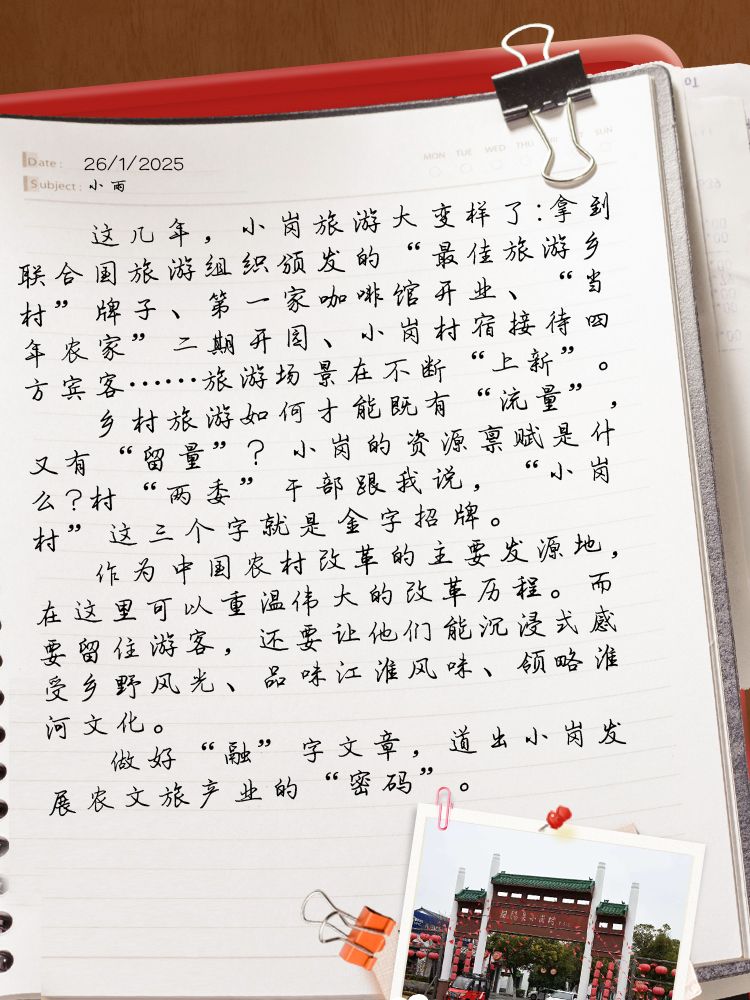 Date: 26/1/2025
MON TUE WED THU SUN
Subject: 小雨
这几年，小岗旅游大变样了：拿到
联合国旅游组织颁发的“最佳旅游乡
村”牌子、第一家咖啡馆开业、“当
年农家”二期开园、小岗村宿接待四
方宾客……旅游场景在不断“上新”。
乡村旅游如何才能既有“流量”，
又有“留量”？小岗的资源禀赋是什
么？村“两委”干部跟我说，“小岗
村”这三个字就是金字招牌。
作为中国农村改革的主要发源地，
在这里可以重温伟大的改革历程。而
要留住游客，还要让他们能沉浸式感
受乡野风光、品味江淮风味、领略淮
河文化。
做好“融”字文章，道出小岗发
展农文旅产业的“密码”。
凤阳县小岗村